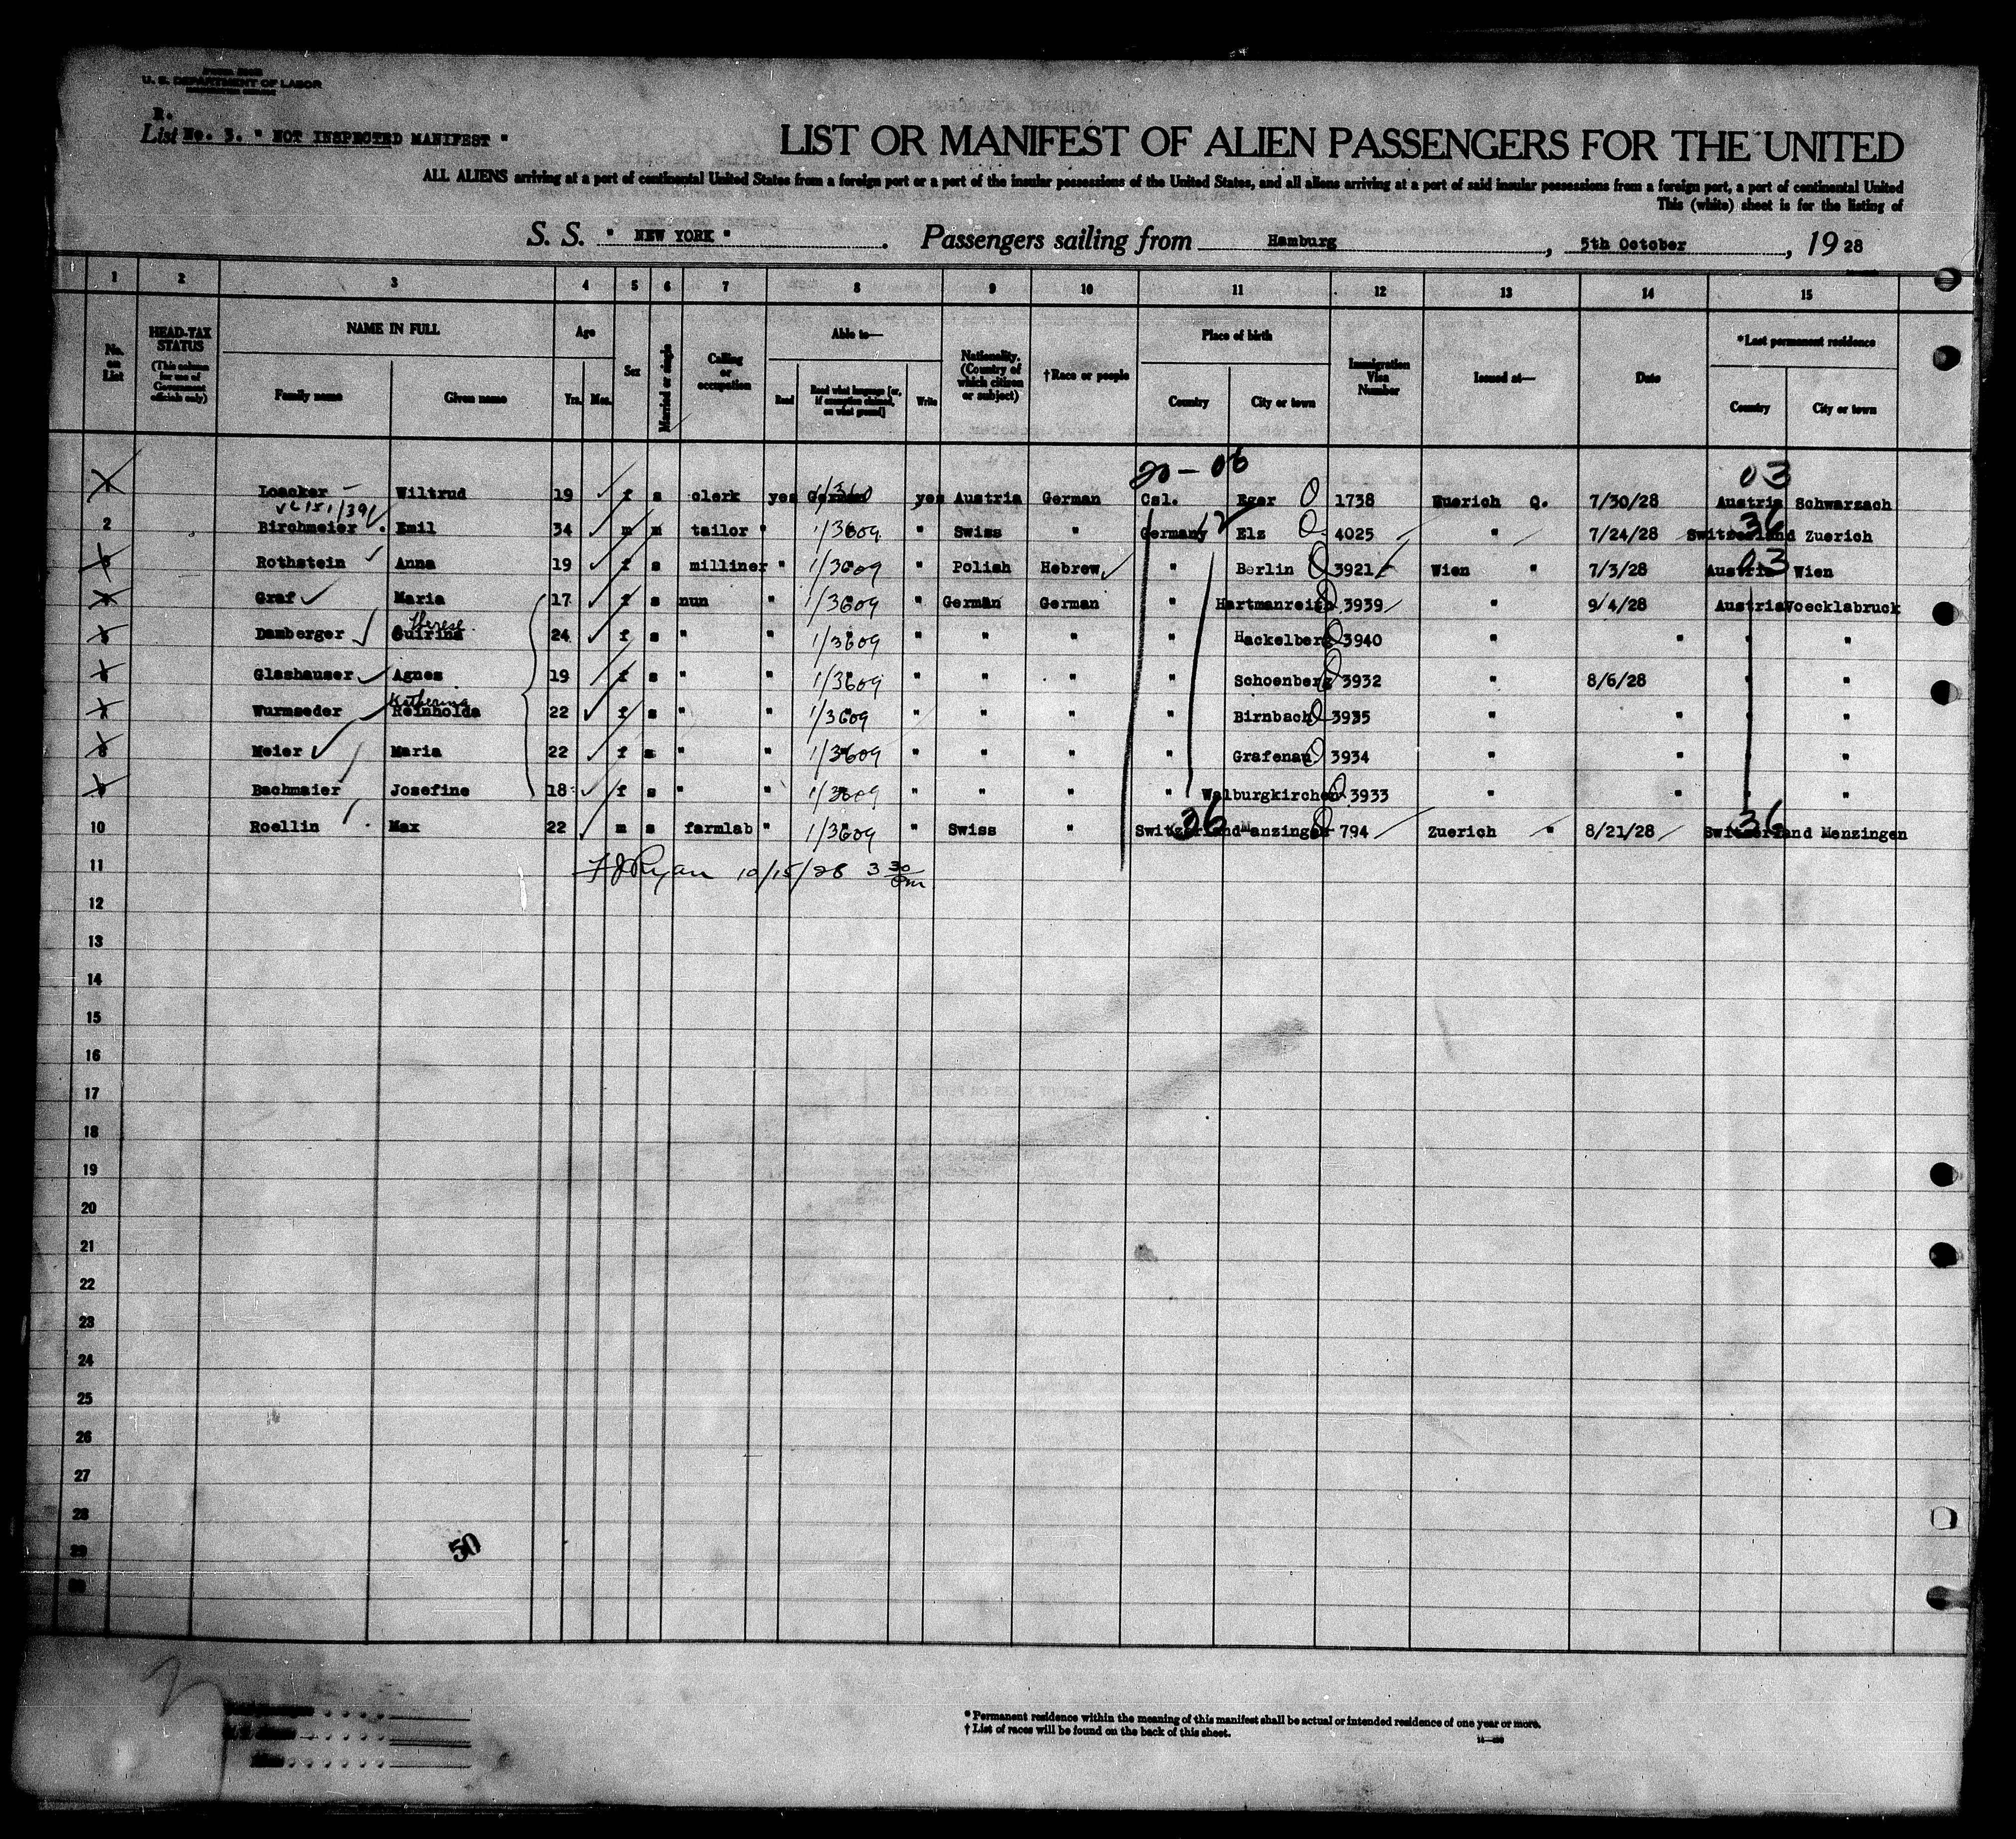 U. S. DEPARTMENT OF LABOR
R.
List No. 3. " NOT INSPECTED MANIFEST "
LIST OR MANIFEST OF ALIEN PASSENGERS FOR THE UNITED
ALL ALIENS arriving at a port of continental United States from a foreign port or a port of the insular possessions of the United States, and all aliens arriving at a port of said insular possessions from a foreign port, a port of continental United
This (white) sheet is for the listing of
S. S. " NEW YORK " . Passengers sailing from Hamburg , 5th October , 19 28
1 2 3 4 5 6 7 8 9 10 11 12 13 14 15
No. on List
HEAD-TAX STATUS (This column for use of Government officials only)
NAME IN FULL
Family name Given name
Age
Yrs. Mos.
Sex
Married or single
Calling or occupation
Able to—
Read Read what language [or, if exemption claimed, on what ground] Write
Nationality. (Country of which citizen or subject)
†Race or people
Place of birth
Country City or town
Immigration Visa Number
Issued at—
Date
*Last permanent residence
Country City or town
20 - 06 03
1 Loacker Wiltrud 19 f s clerk yes German yes Austria German Csl. Eger 1738 Zuerich Q. 7/30/28 Austria Schwarzach
2 Birchmeier Emil 34 m m tailor " 1/3609 " Swiss " Germany 12 Elz 4025 " 7/24/28 Switzerland 36 Zuerich
3 Rothstein Anna 19 f s milliner " 1/3609 " Polish Hebrew " Berlin 3921 Wien " 7/3/28 Austria 03 Wien
4 Graf Maria 17 f s nun " 1/3609 " German German " Hartmanreis 3939 " 9/4/28 Austria Voecklabruck
Therese
5 Damberger Quirina 24 f s " " 1/3609 " " " " Hackelberg 3940 " " " "
6 Glashauser Agnes 19 f s " " 1/3609 " " " " Schoenberg 3932 " 8/6/28 " "
Katherina
7 Wurmseder Reinholda 22 f s " " 1/3609 " " " " Birnbach 3935 " " " "
8 Meier Maria 22 f s " " 1/3609 " " " " Grafenau 3934 " " " "
9 Bachmaier Josefine 18 f s " " 1/3609 " " " " Walburgkirchen 3933 " " " "
10 Roellin Max 22 m s farmlab " 1/3609 " Swiss " Switzerland 36 Manzingen 794 Zuerich " 8/21/28 Switzerland 36 Menzingen
11 FJRyan 10/15/28 3 30 pm
12
13
14
15
16
17
18
19
20
21
22
23
24
25
26
27
28
29
30
50
* Permanent residence within the meaning of this manifest shall be actual or intended residence of one year or more.
† List of races will be found on the back of this sheet.